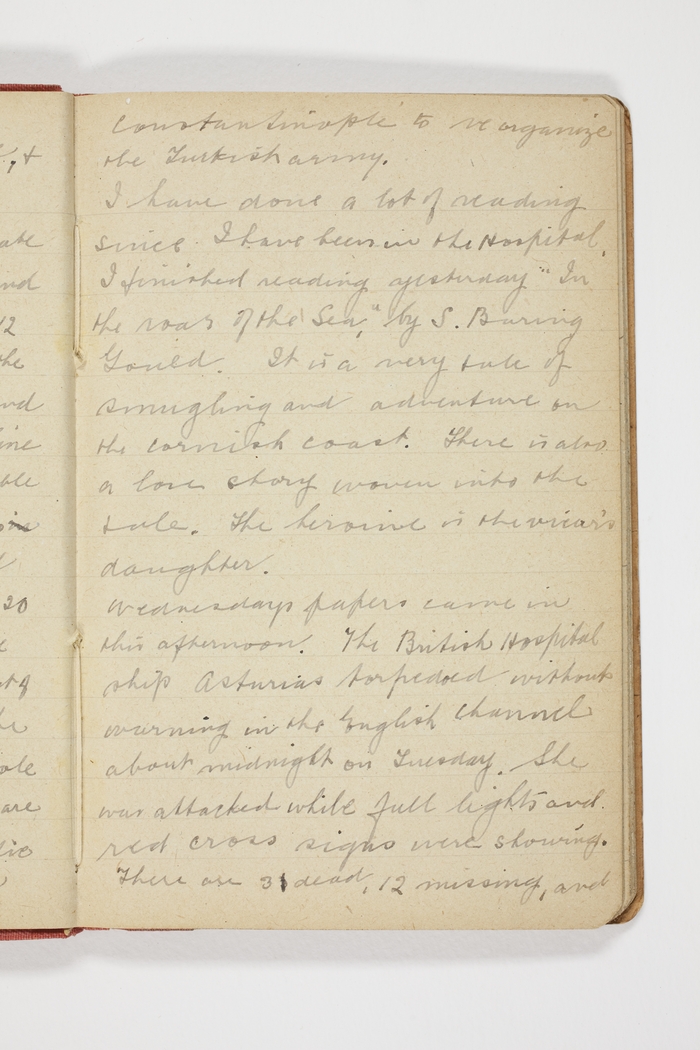 Constantinople to reorganize
the Turkish army.
I have done a lot of reading
since I have been in the Hospital.
I finished reading yesterday "In
the roar of the Sea," by S. Baring
Gould. It is a very tale of
smugling and adventure on
the cornish coast. There is also
a love story woven into the
tale. The heroine is the vicar's
daughter.
Wednesdays papers came in
this afternoon. The British Hospital
ship Asturias torpedoed without
warning in the English Channel
about midnight on Tuesday. She
was attacked while full lights and
red cross signs were showing.
There are 31 dead, 12 missing, and
,+
ate
nd
12
the
nd
ine
ble
20
ole
are